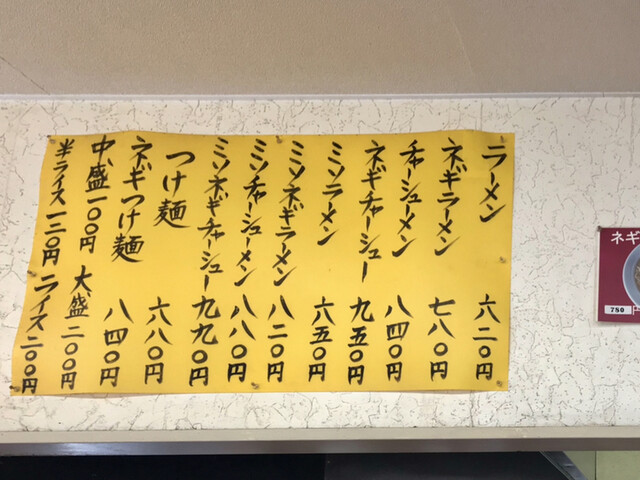 ラーメン 六二〇円
ネギラーメン 七八〇円
チャーシューメン 八四〇円
ネギチャーシュー 九五〇円
ミソラーメン 六五〇円
ミソネギラーメン 八二〇円
ミソチャーシューメン 八八〇円
ミソネギチャーシュー 九九〇円
つけ麺 六八〇円
ネギつけ麺 八四〇円
中盛一〇〇円 大盛二〇〇円
半ライス一三〇円 ライス二〇〇円
ネギ
750